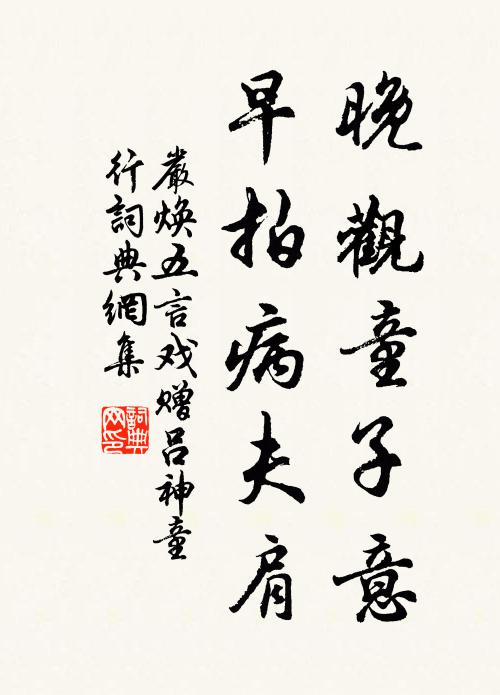 晚觀童子意
早拍病夫肩
嚴煥五言戏赠吕神童
行詞典網集
詞典网印